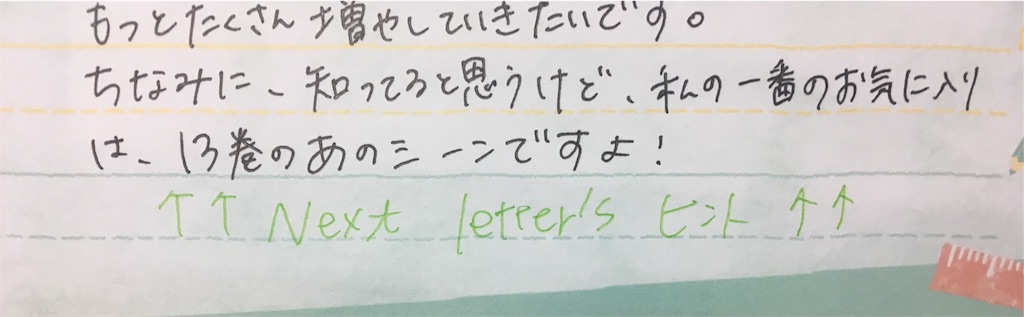 もっとたくさん増やしていきたいです。
ちなみに、知ってると思うけど、私の一番のお気に入り
は、13巻のあのシーンですよ!
↑↑ Next letter's ヒント ↑↑